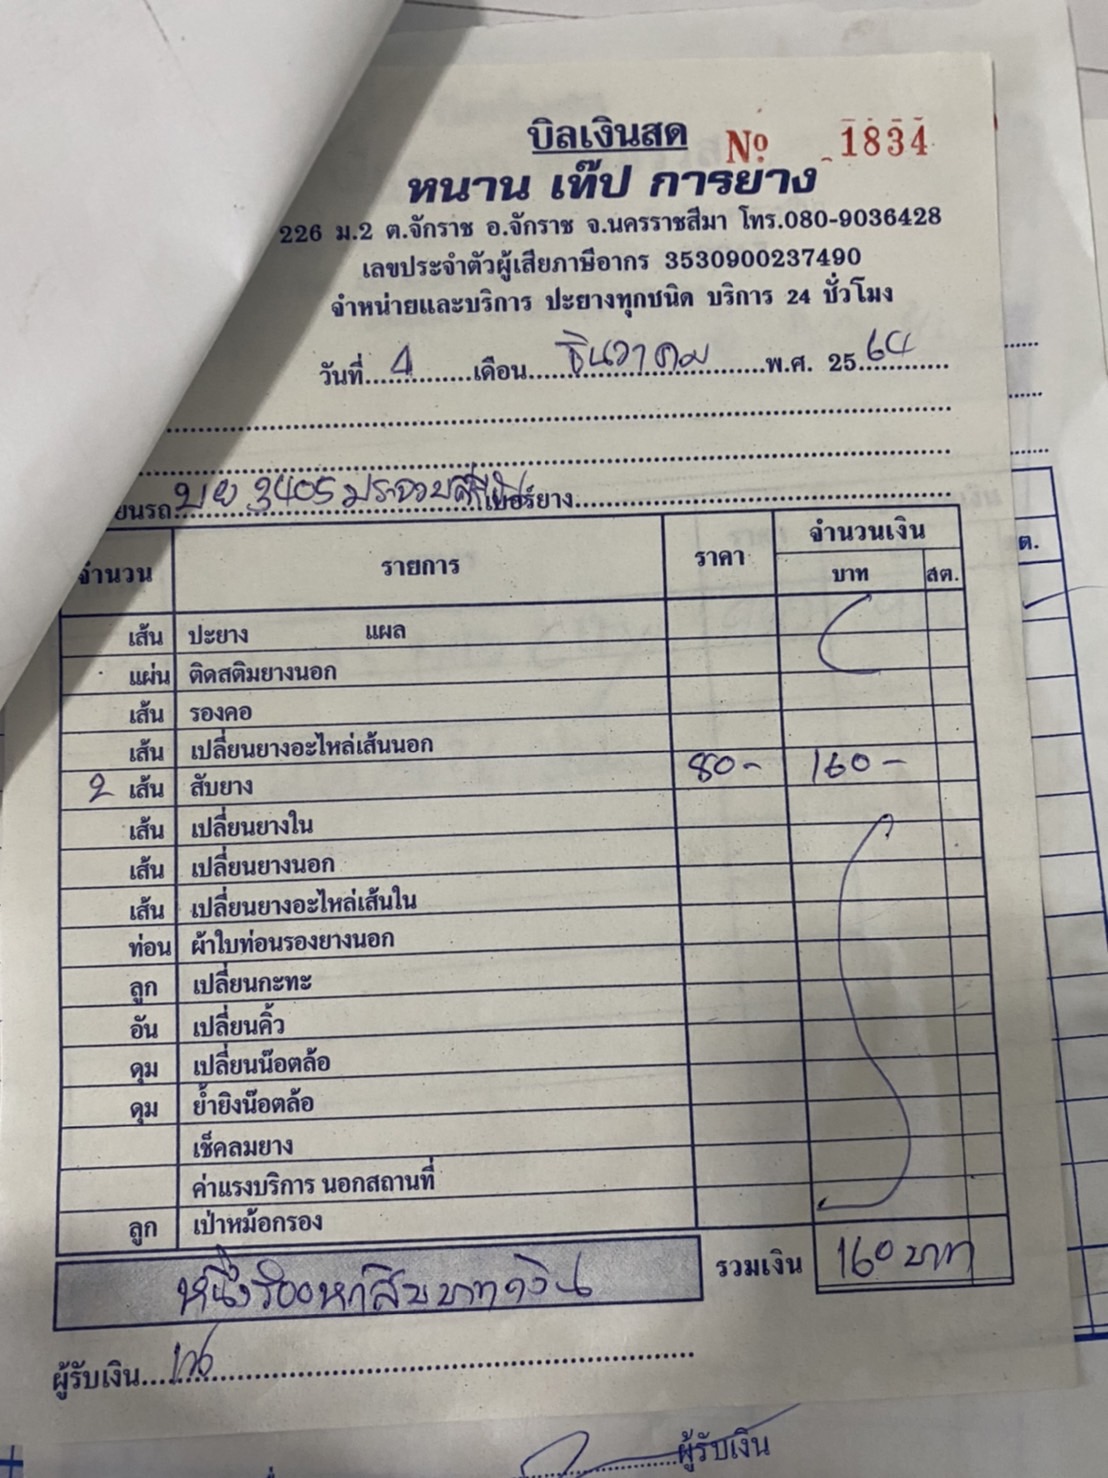 บิลเงินสด
Nº 1834
หนาน เท๊ป การยาง
226 ม.2 ต.จักราช อ.จักราช จ.นครราชสีมา โทร.080-9036428
เลขประจำตัวผู้เสียภาษีอากร 3530900237490
จำหน่ายและบริการ ปะยางทุกชนิด บริการ 24 ชั่วโมง
วันที่ 4 เดือน ธันวาคม พ.ศ. 2564
ยนรถ บย 3405 ประจวบคีรีขันธ์ เบอร์ยาง
จำนวน รายการ ราคา จำนวนเงิน
บาท สต.
เส้น ปะยาง แผล
แผ่น ติดสติมยางนอก
เส้น รองคอ
เส้น เปลี่ยนยางอะไหล่เส้นนอก
2 เส้น สับยาง 80- 160-
เส้น เปลี่ยนยางใน
เส้น เปลี่ยนยางนอก
เส้น เปลี่ยนยางอะไหล่เส้นใน
ท่อน ผ้าใบท่อนรองยางนอก
ลูก เปลี่ยนกะทะ
อัน เปลี่ยนคิ้ว
ดุม เปลี่ยนน๊อตล้อ
ดุม ย้ำยิงน๊อตล้อ
เช็คลมยาง
ค่าแรงบริการ นอกสถานที่
ลูก เป่าหม้อกรอง
หนึ่งร้อยหกสิบบาทถ้วน รวมเงิน 160 บาท
ผู้รับเงิน
ผู้รับเงิน
ต.